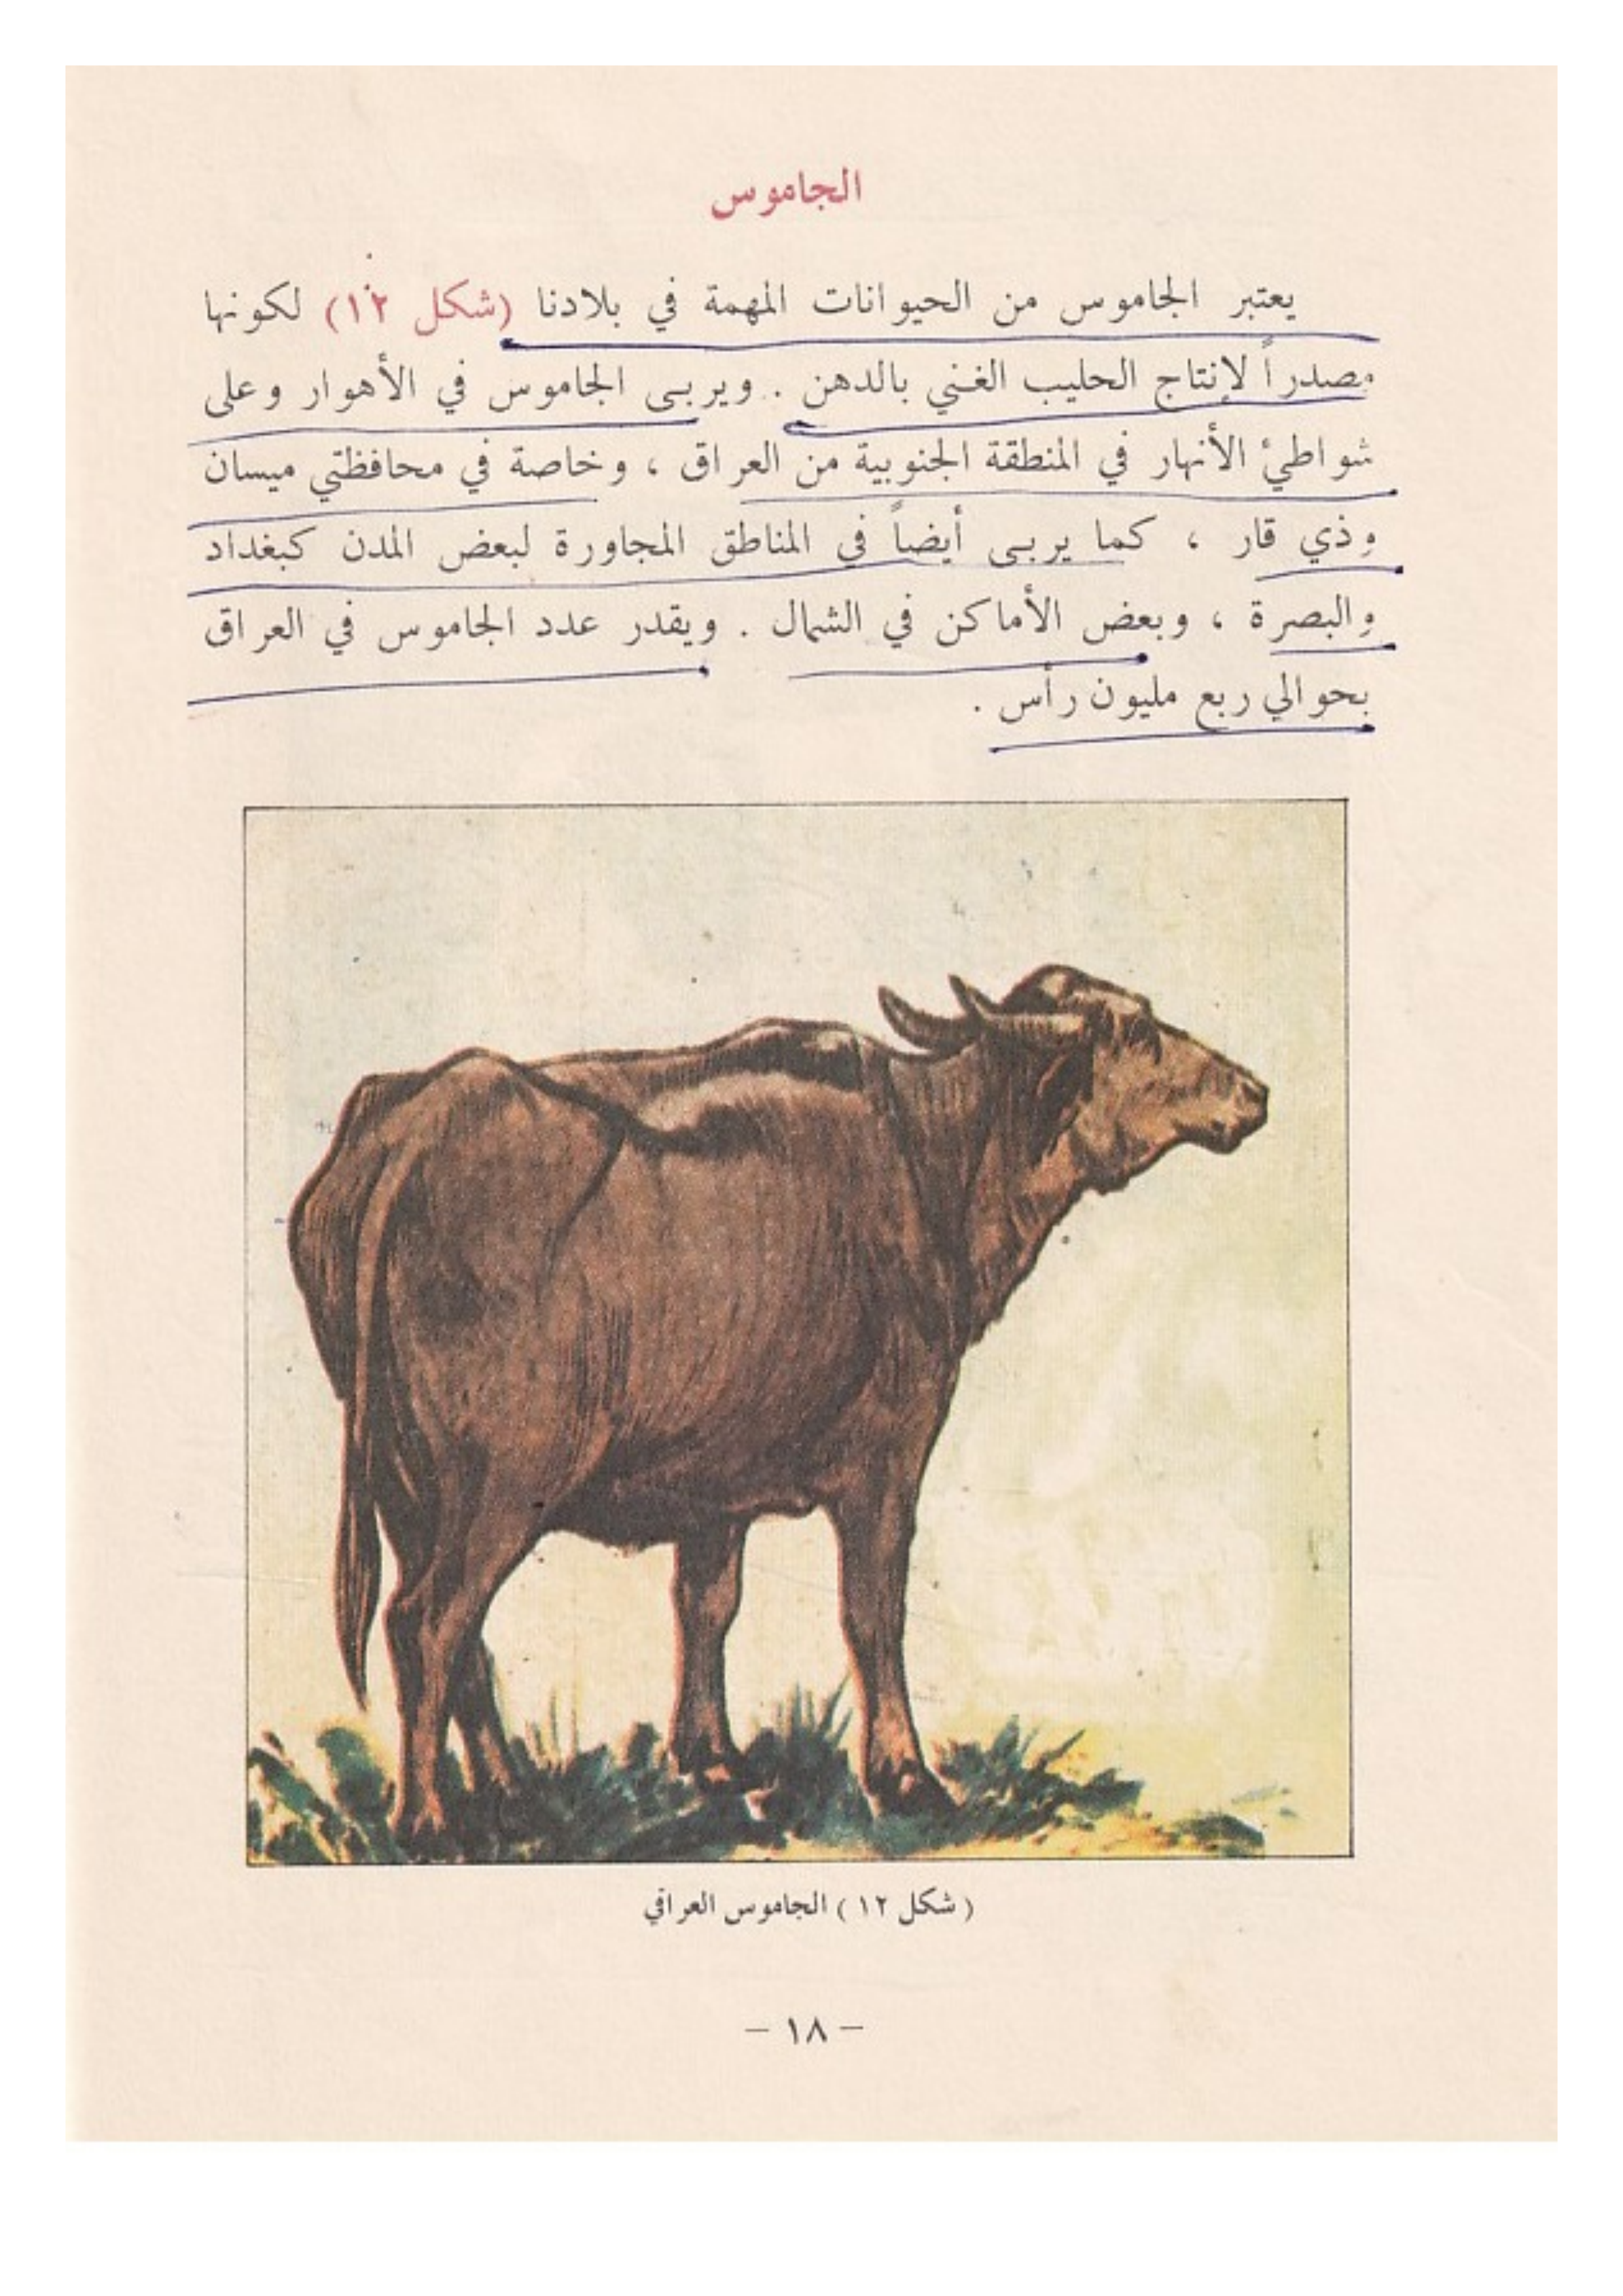 الجاموس
يعتبر الجاموس من الحيوانات المهمة في بلادنا (شكل ١٢) لكونها
مصدراً لإنتاج الحليب الغني بالدهن . ويربى الجاموس في الأهوار وعلى
شواطئ الأنهار في المنطقة الجنوبية من العراق ، وخاصة في محافظتي ميسان
وذي قار ، كما يربى أيضاً في المناطق المجاورة لبعض المدن كبغداد
والبصرة ، وبعض الأماكن في الشمال . ويقدر عدد الجاموس في العراق
بحوالي ربع مليون رأس .
( شكل ١٢ ) الجاموس العراقي
– ١٨ –